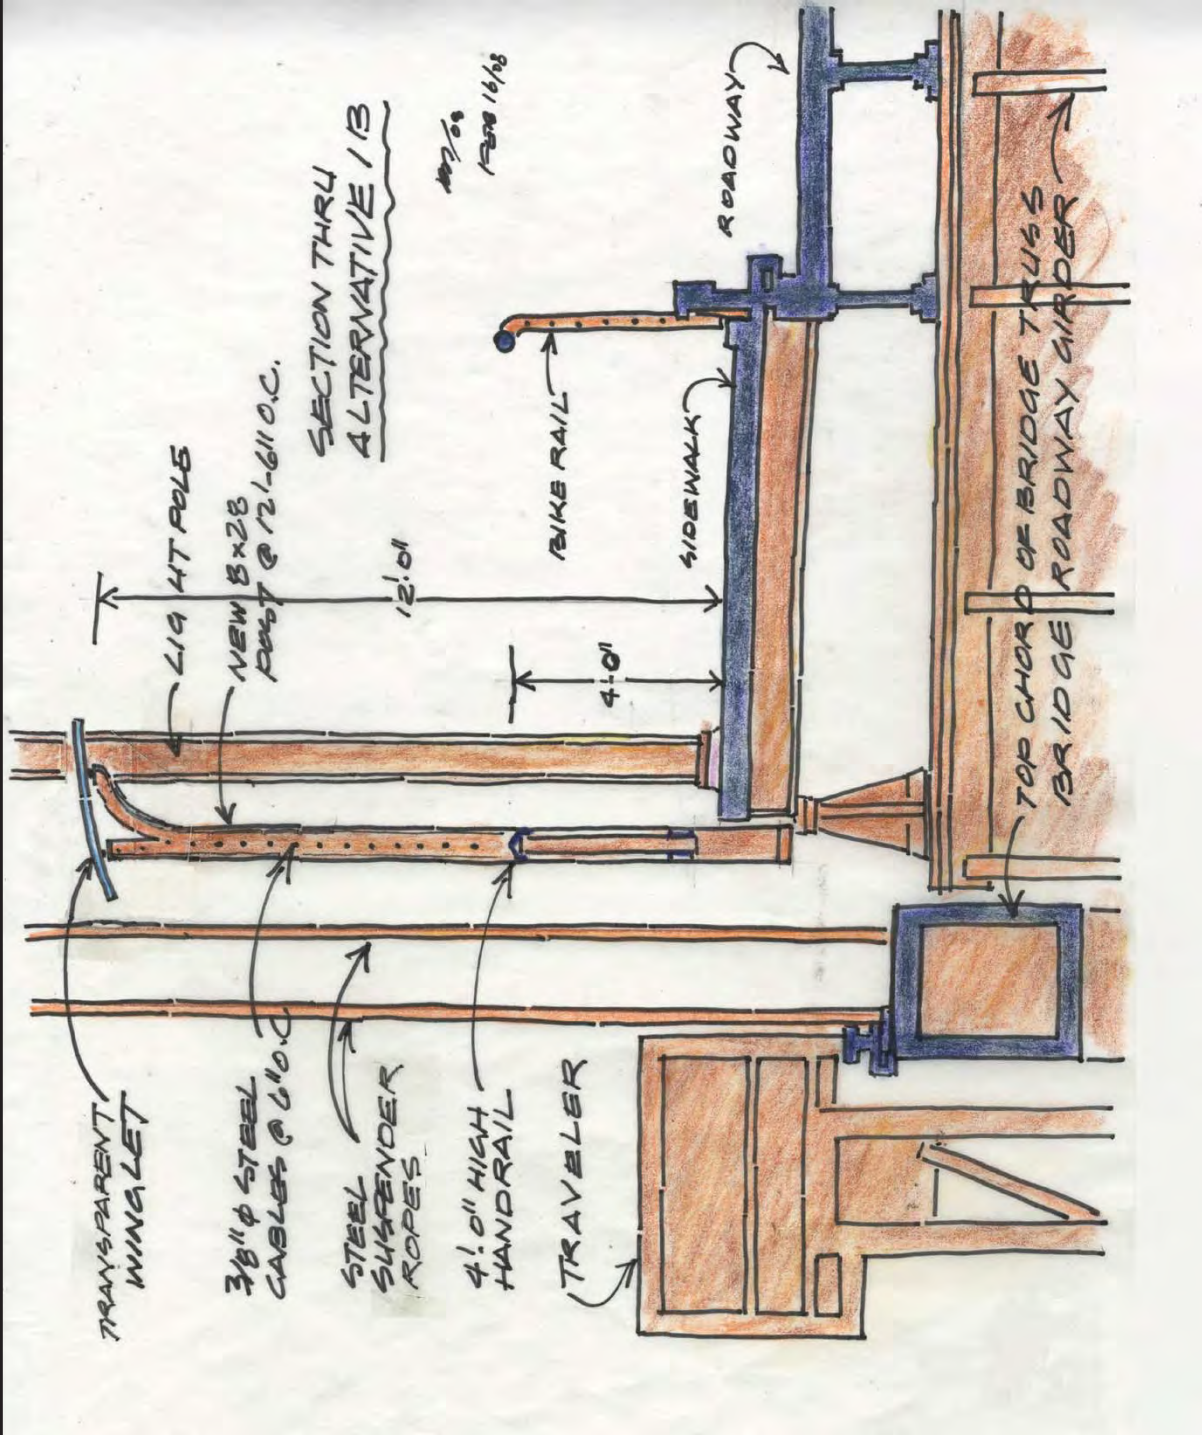 TRANSPARENT
WINGLET
3/8" ϕ STEEL
CABLES @ 6" O.C.
STEEL
SUSPENDER
ROPES
4'-0" HIGH
HANDRAIL
TRAVELER
LIGHT POLE
NEW 8x28
POST @ 12'-6" O.C.
12'-0"
4'-0"
SECTION THRU
ALTERNATIVE 1B
FEB 16/08
BIKE RAIL
SIDEWALK
ROADWAY
TOP CHORD OF BRIDGE TRUSS
BRIDGE ROADWAY GIRDER